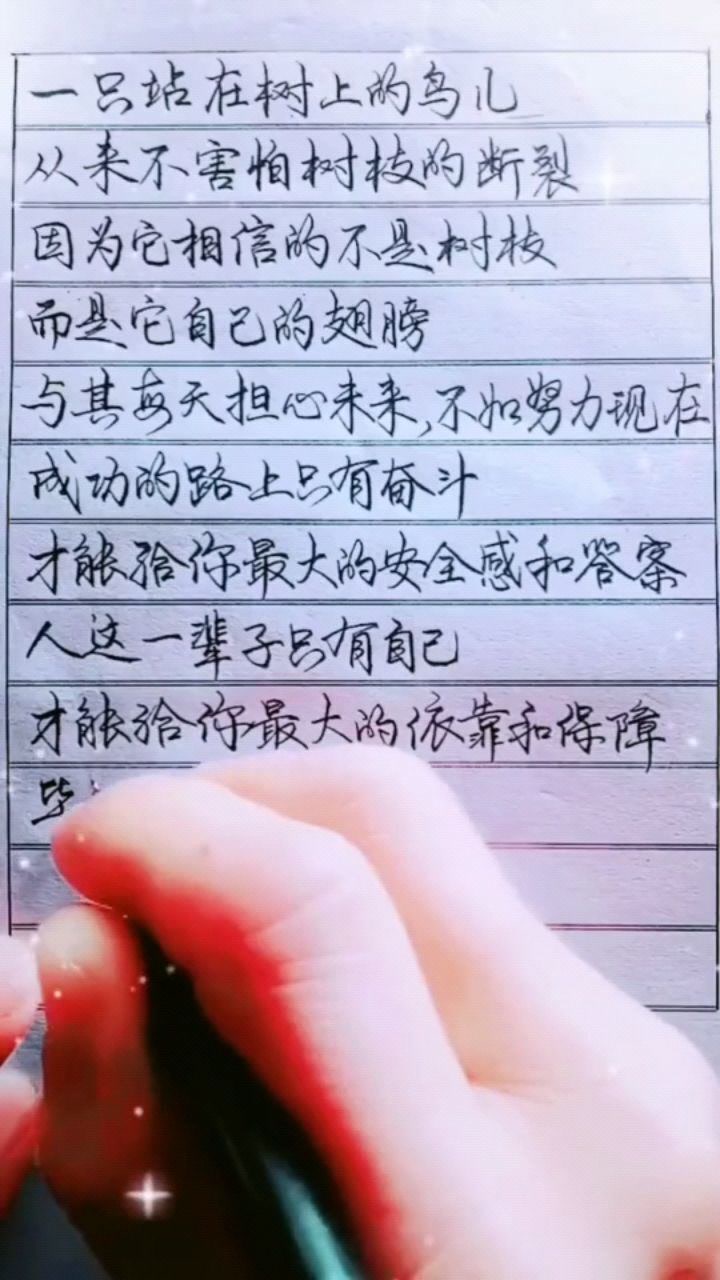 一只站在树上的鸟儿
从来不害怕树枝的断裂
因为它相信的不是树枝
而是它自己的翅膀
与其每天担心未来,不如努力现在
成功的路上只有奋斗
才能给你最大的安全感和答案
人这一辈子只有自己
才能给你最大的依靠和保障
毕